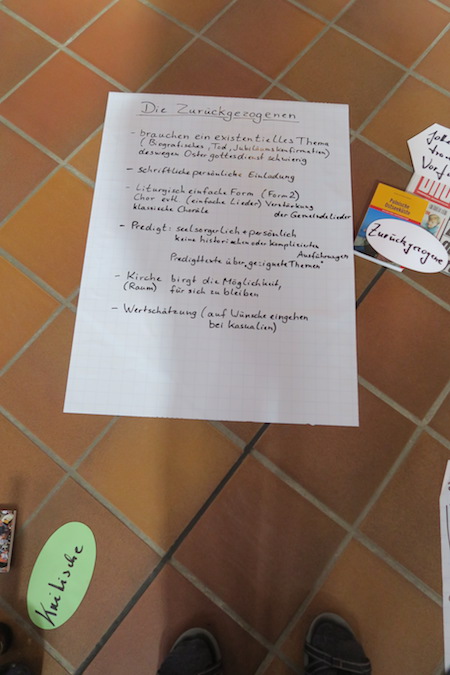 Die Zurückgezogenen
- brauchen ein existentielles Thema
(Biografisches, Tod, Jubiläumskonfirmation)
deswegen Ostergottesdienst schwierig
- Schriftliche persönliche Einladung
- Liturgisch einfache Form (Form 2)
Chor evtl. (einfache Lieder) Verstärkung
klassische Choräle der Gemeindelieder
- Predigt: seelsorgerlich + persönlich
keine historischen oder komplizierte
Ausführungen
Predigttexte über "geeignete Themen"
- Kirche birgt die Möglichkeit,
(Raum) für sich zu bleiben
- Wertschätzung (auf Wünsche eingehen
bei Kasualien)
Zurückgezogene
Kritische